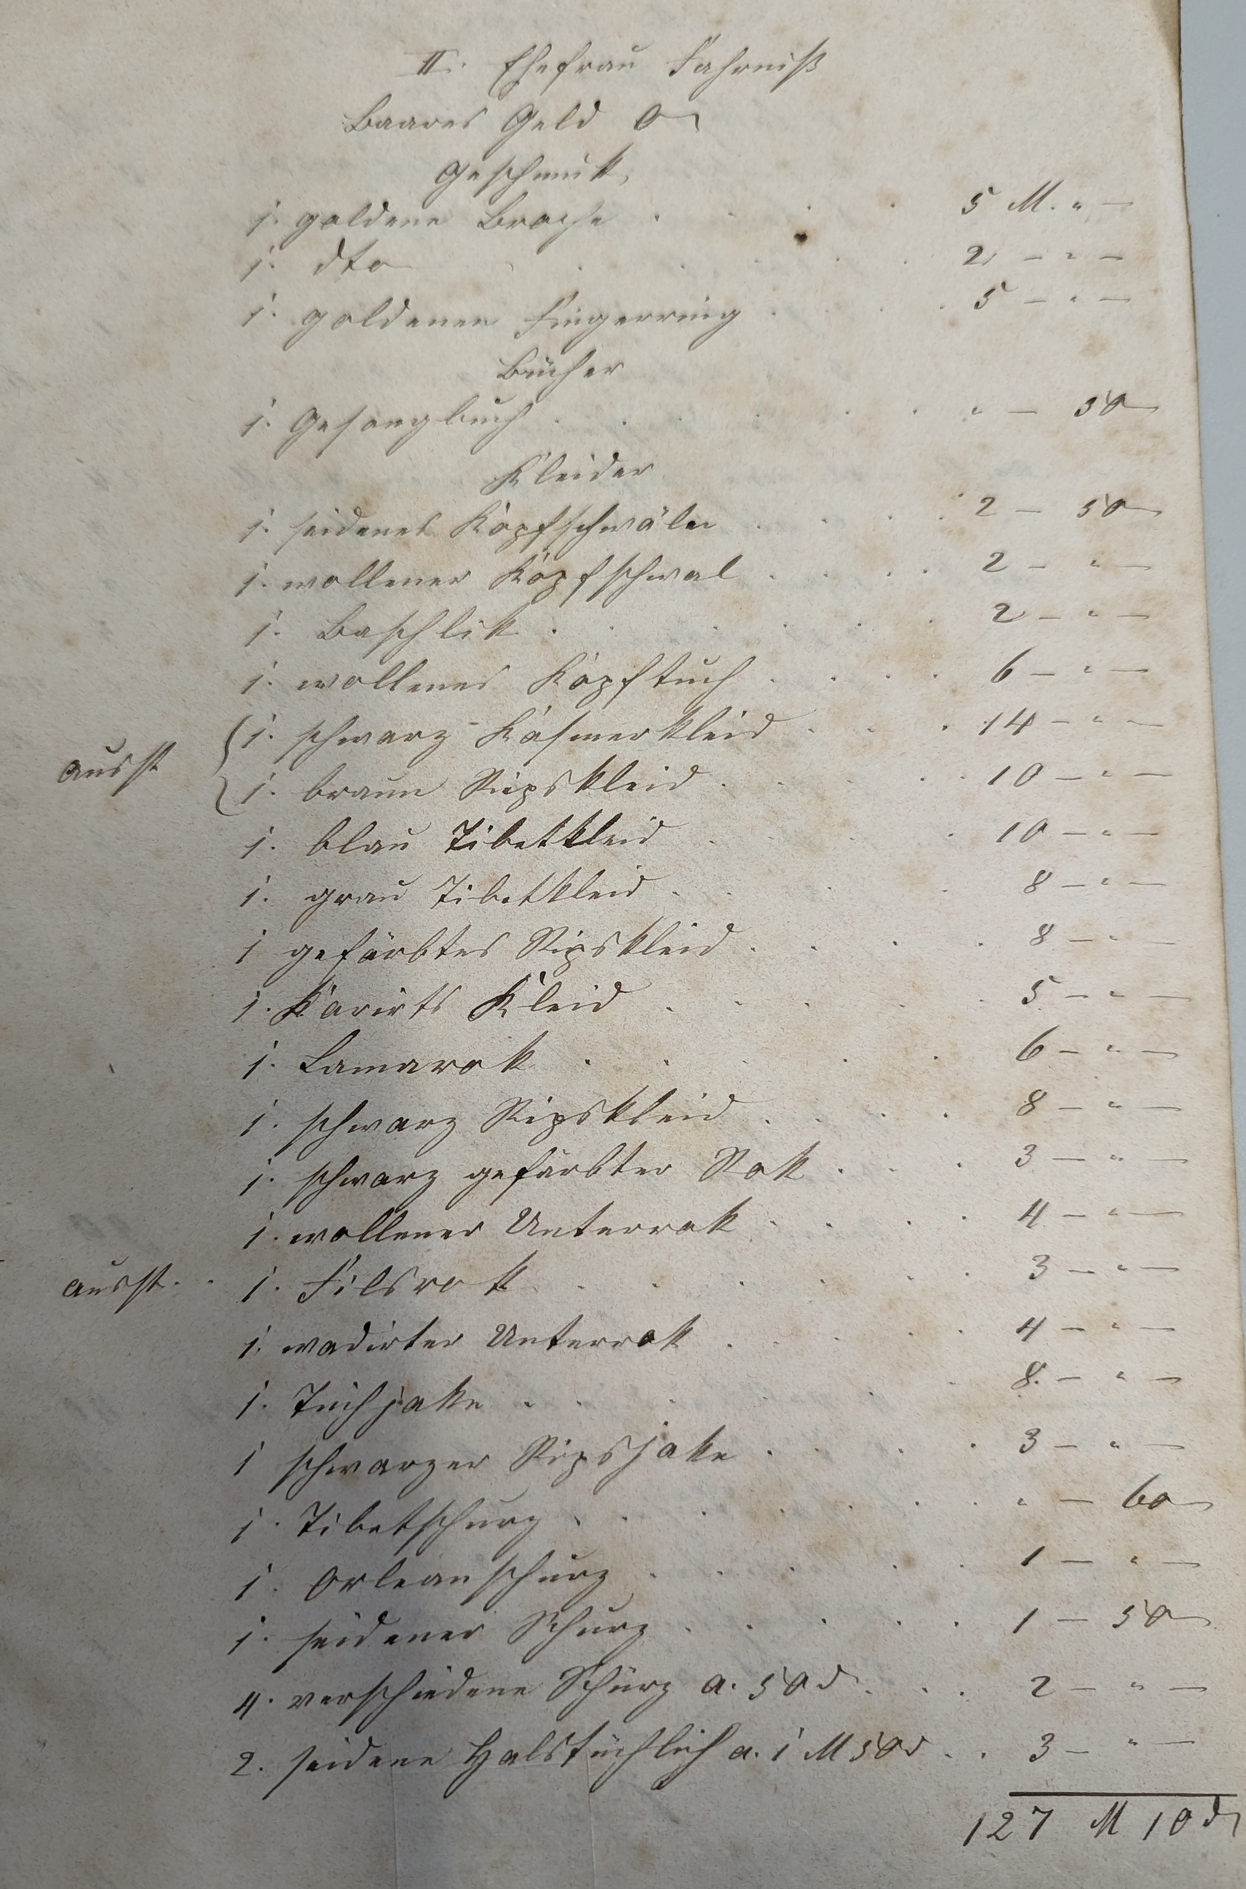 II. Ehefrau Fahrniß
Baares Geld 0
Geschmuk,
1. goldene Broche . . . . 5 M. " —
1. dto . . . . 2 — " —
1. goldenen Fingerring . . . 5 — " —
Bücher
1. Gesangbuch . . . . " — 50
Kleider
1. seidenes Kopfschwäle . . . 2 — 50
1. wollener Kopfschwal . . . . 2 — " —
1. Baschlik . . . . . 2 — " —
1. wollenes Kopftuch . . . . 6 — " —
1. schwarz Kasmerkleid . . . 14 — " —
Ausst
1. braun Ripskleid . . . . 10 — " —
1. blau Tibetkleid . . . 10 — " —
1. grau Tibetkleid . . . . 8 — " —
1 gefärbtes Ripskleid . . . . 8 — " —
1. Karirts Kleid . . . . 5 — " —
1. Lamarok . . . . 6 — " —
1. schwarz Ripskleid . . . . 8 — " —
1. schwarz gefärbter Rok . . . 3 — " —
1. wollener Unterrok . . . . 4 — " —
Ausst. . 1. Filsrok . . . . . 3 — " —
1. wadirter Unterrok . . . . 4 — " —
1. Tuchjake . . . . . 8. — " —
1 schwarzer Ripsjake . . . . 3 — " —
1. Tibetschurz . . . . . " — 60
1. Orleanschurz . . . . 1 — " —
1. seidener Schurz . . . . . 1 — 50
4. verschiedene Schürz a. 50 d. . . . 2 — " —
2. seidene Halstüchlich a. 1 M 50 d . . 3 — " —
127 M 10 d